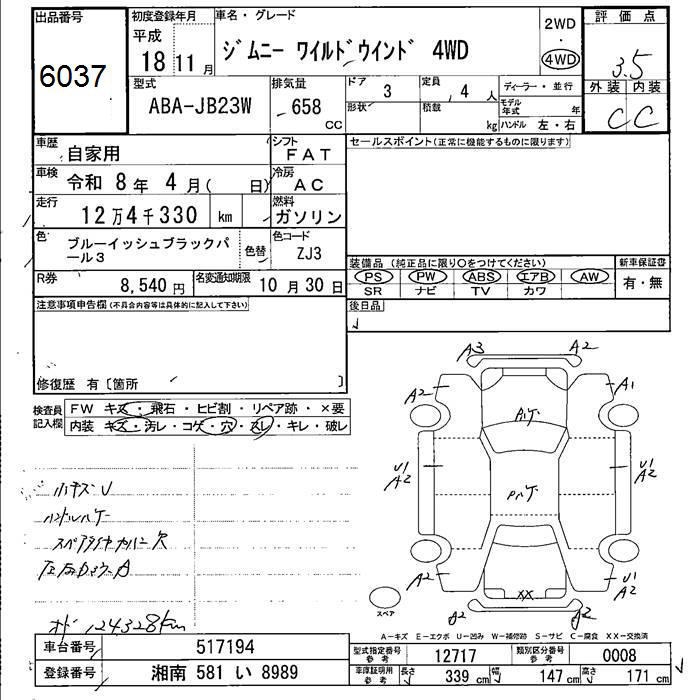 出品番号 初度登録年月 車名・グレード 2WD 評価点
6037 平成 18 11月 ジムニー ワイルドウインド 4WD ・ 4WD 3.5
型式 排気量 ドア 3 定員 4人 ディーラー・並行 外装 内装
ABA-JB23W 658 CC 形状 積載 kg モデル年式 年 ハンドル 左・右 C C
車歴 自家用 シフト FAT セールスポイント(正常に機能するものに限ります)
車検 令和 8年 4月( 日) 冷房 AC
走行 12万4千330 km 燃料 ガソリン
色 ブルーイッシュブラックパール3 色替 色コード ZJ3
装備品(純正品に限り○をつけてください) 新車保証書
R券 8,540円 名変通知期限 10月30日 PS PW ABS エアB AW 有・無
SR ナビ TV カワ
注意事項申告欄(不具合内容等は具体的に記入して下さい) 後日品
修復歴 有〔箇所 〕
検査員記入欄 FW キズ・飛石・ヒビ割・リペア跡・×要
内装 キズ・汚レ・コゲ・穴・スレ・キレ・破レ
A3 A2
A2 A1
U1 A2 U1 A2
A2 U1 A2
XX
A2 A2
スペア
オド 124328km
A-キズ E-エクボ U-凹み W-補修跡 S-サビ C-腐食 XX-交換済
車台番号 517194 型式指定番号 参考 12717 類別区分番号 参考 0008
登録番号 湘南 581 い 8989 車庫証明用 参考 長さ 339cm 幅 147cm 高さ 171cm